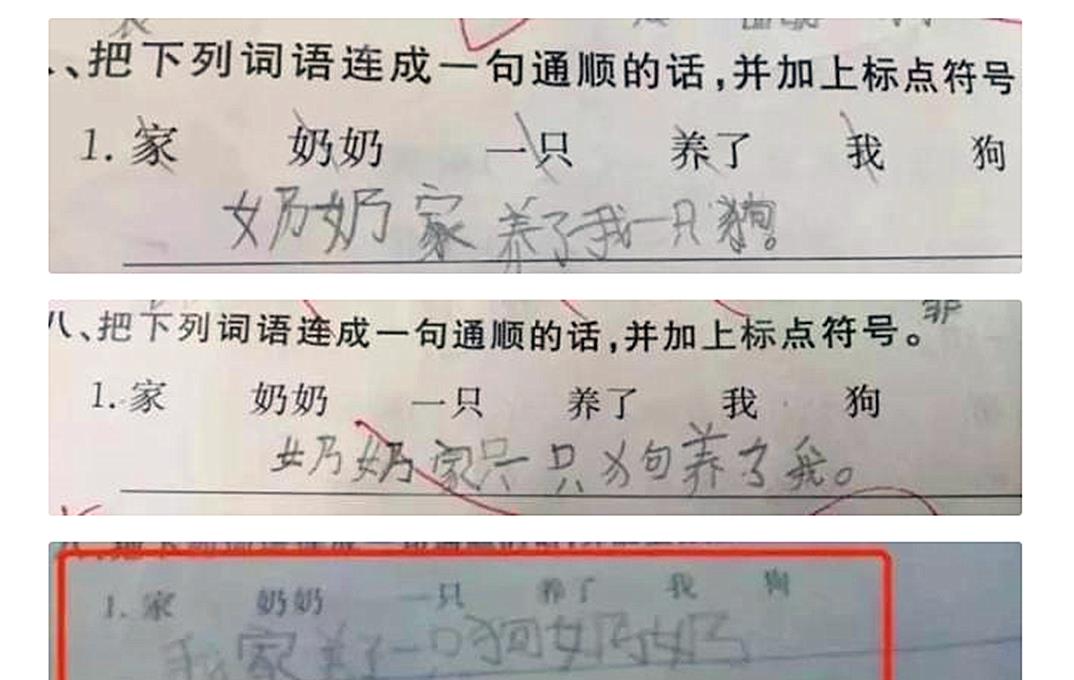 、把下列词语连成一句通顺的话,并加上标点符号
1. 家 奶奶 一只 养了 我 狗
奶奶家养了我一只狗。
八、把下列词语连成一句通顺的话,并加上标点符号。
1. 家 奶奶 一只 养了 我 狗
奶奶家只一只狗养了我。
1. 家 奶奶 一只 养了 我 狗
我家养了一只狗奶奶